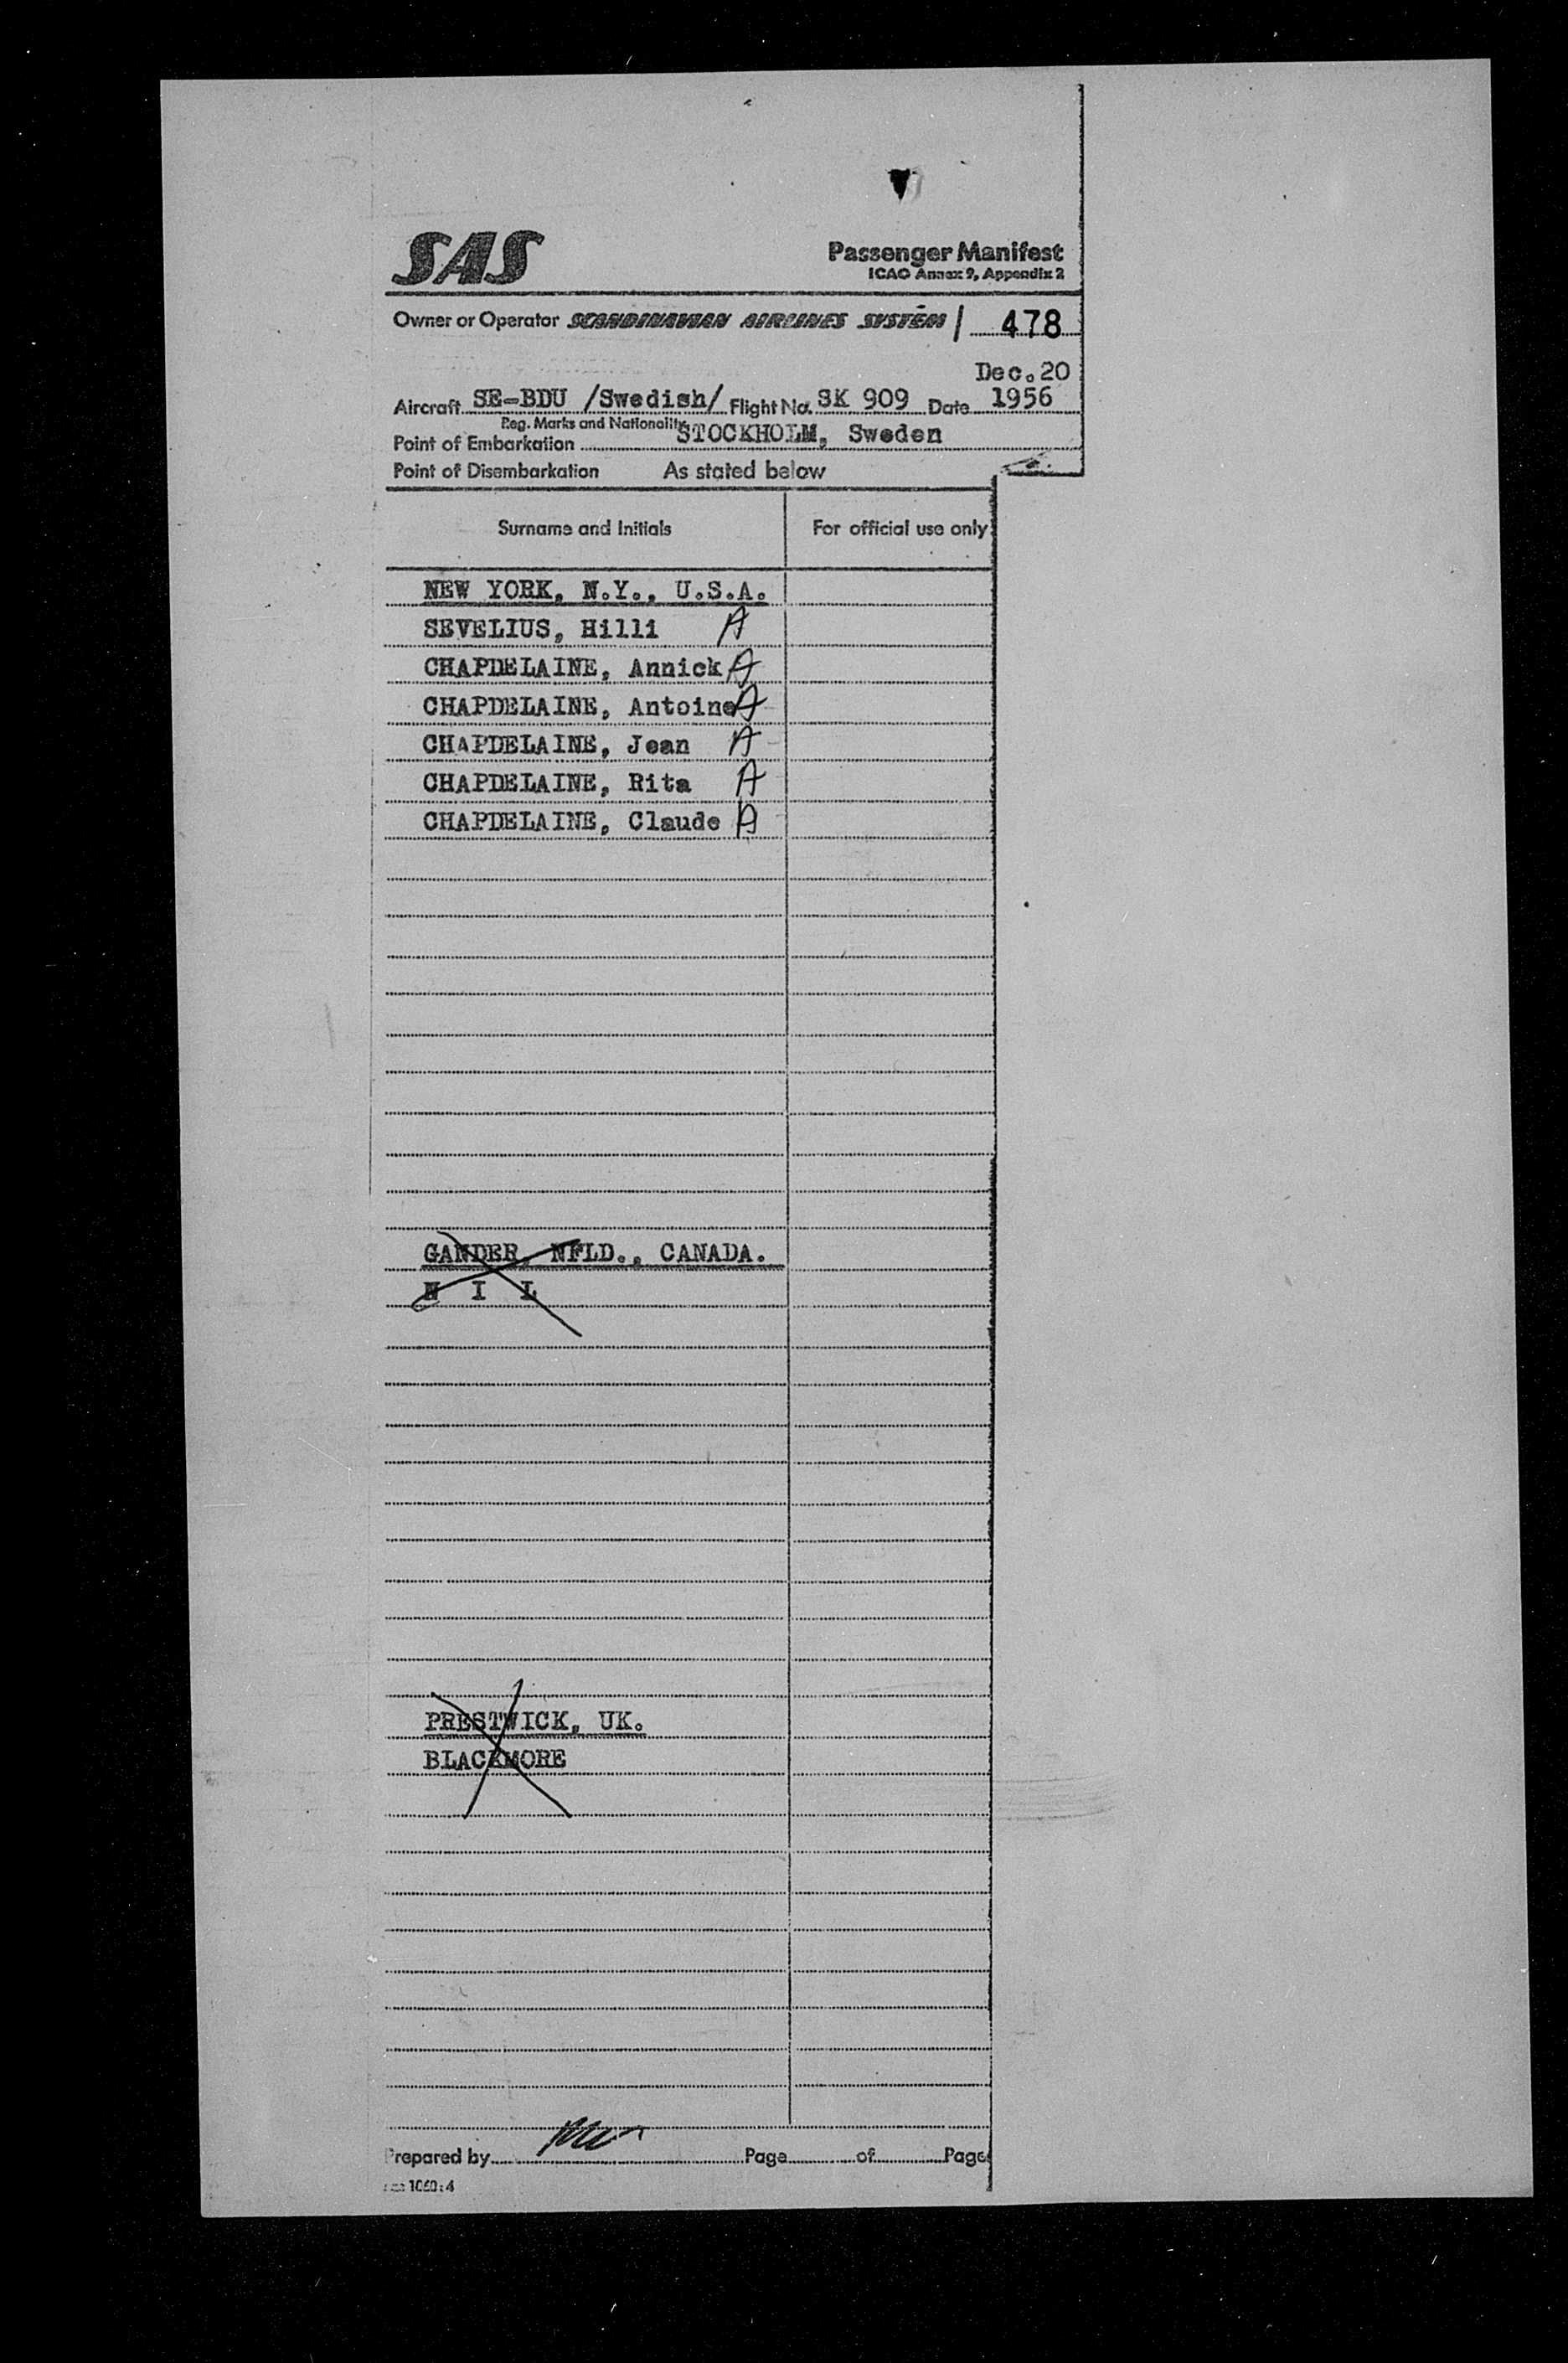 SAS
Passenger Manifest
ICAO Annex 9, Appendix 2
Owner or Operator SCANDINAVIAN AIRLINES SYSTEM / 478
Dec. 20
Aircraft SE-BDU /Swedish/ Flight No. SK 909 Date 1956
Reg. Marks and Nationality
Point of Embarkation STOCKHOLM, Sweden
Point of Disembarkation As stated below
Surname and Initials For official use only
NEW YORK, N.Y., U.S.A.
SEVELIUS, Hilli A
CHAPDELAINE, Annick A
CHAPDELAINE, Antoine A
CHAPDELAINE, Jean A
CHAPDELAINE, Rita A
CHAPDELAINE, Claude A
GANDER, NFLD., CANADA.
N I L
PRESTWICK, UK.
BLACKMORE
Prepared by Page of Page
1060:4